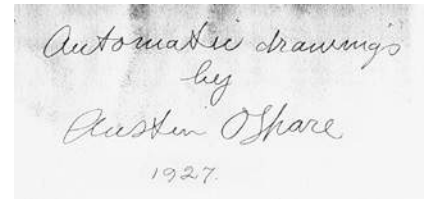 Automatic drawings
by
Austin OSpare
1927.